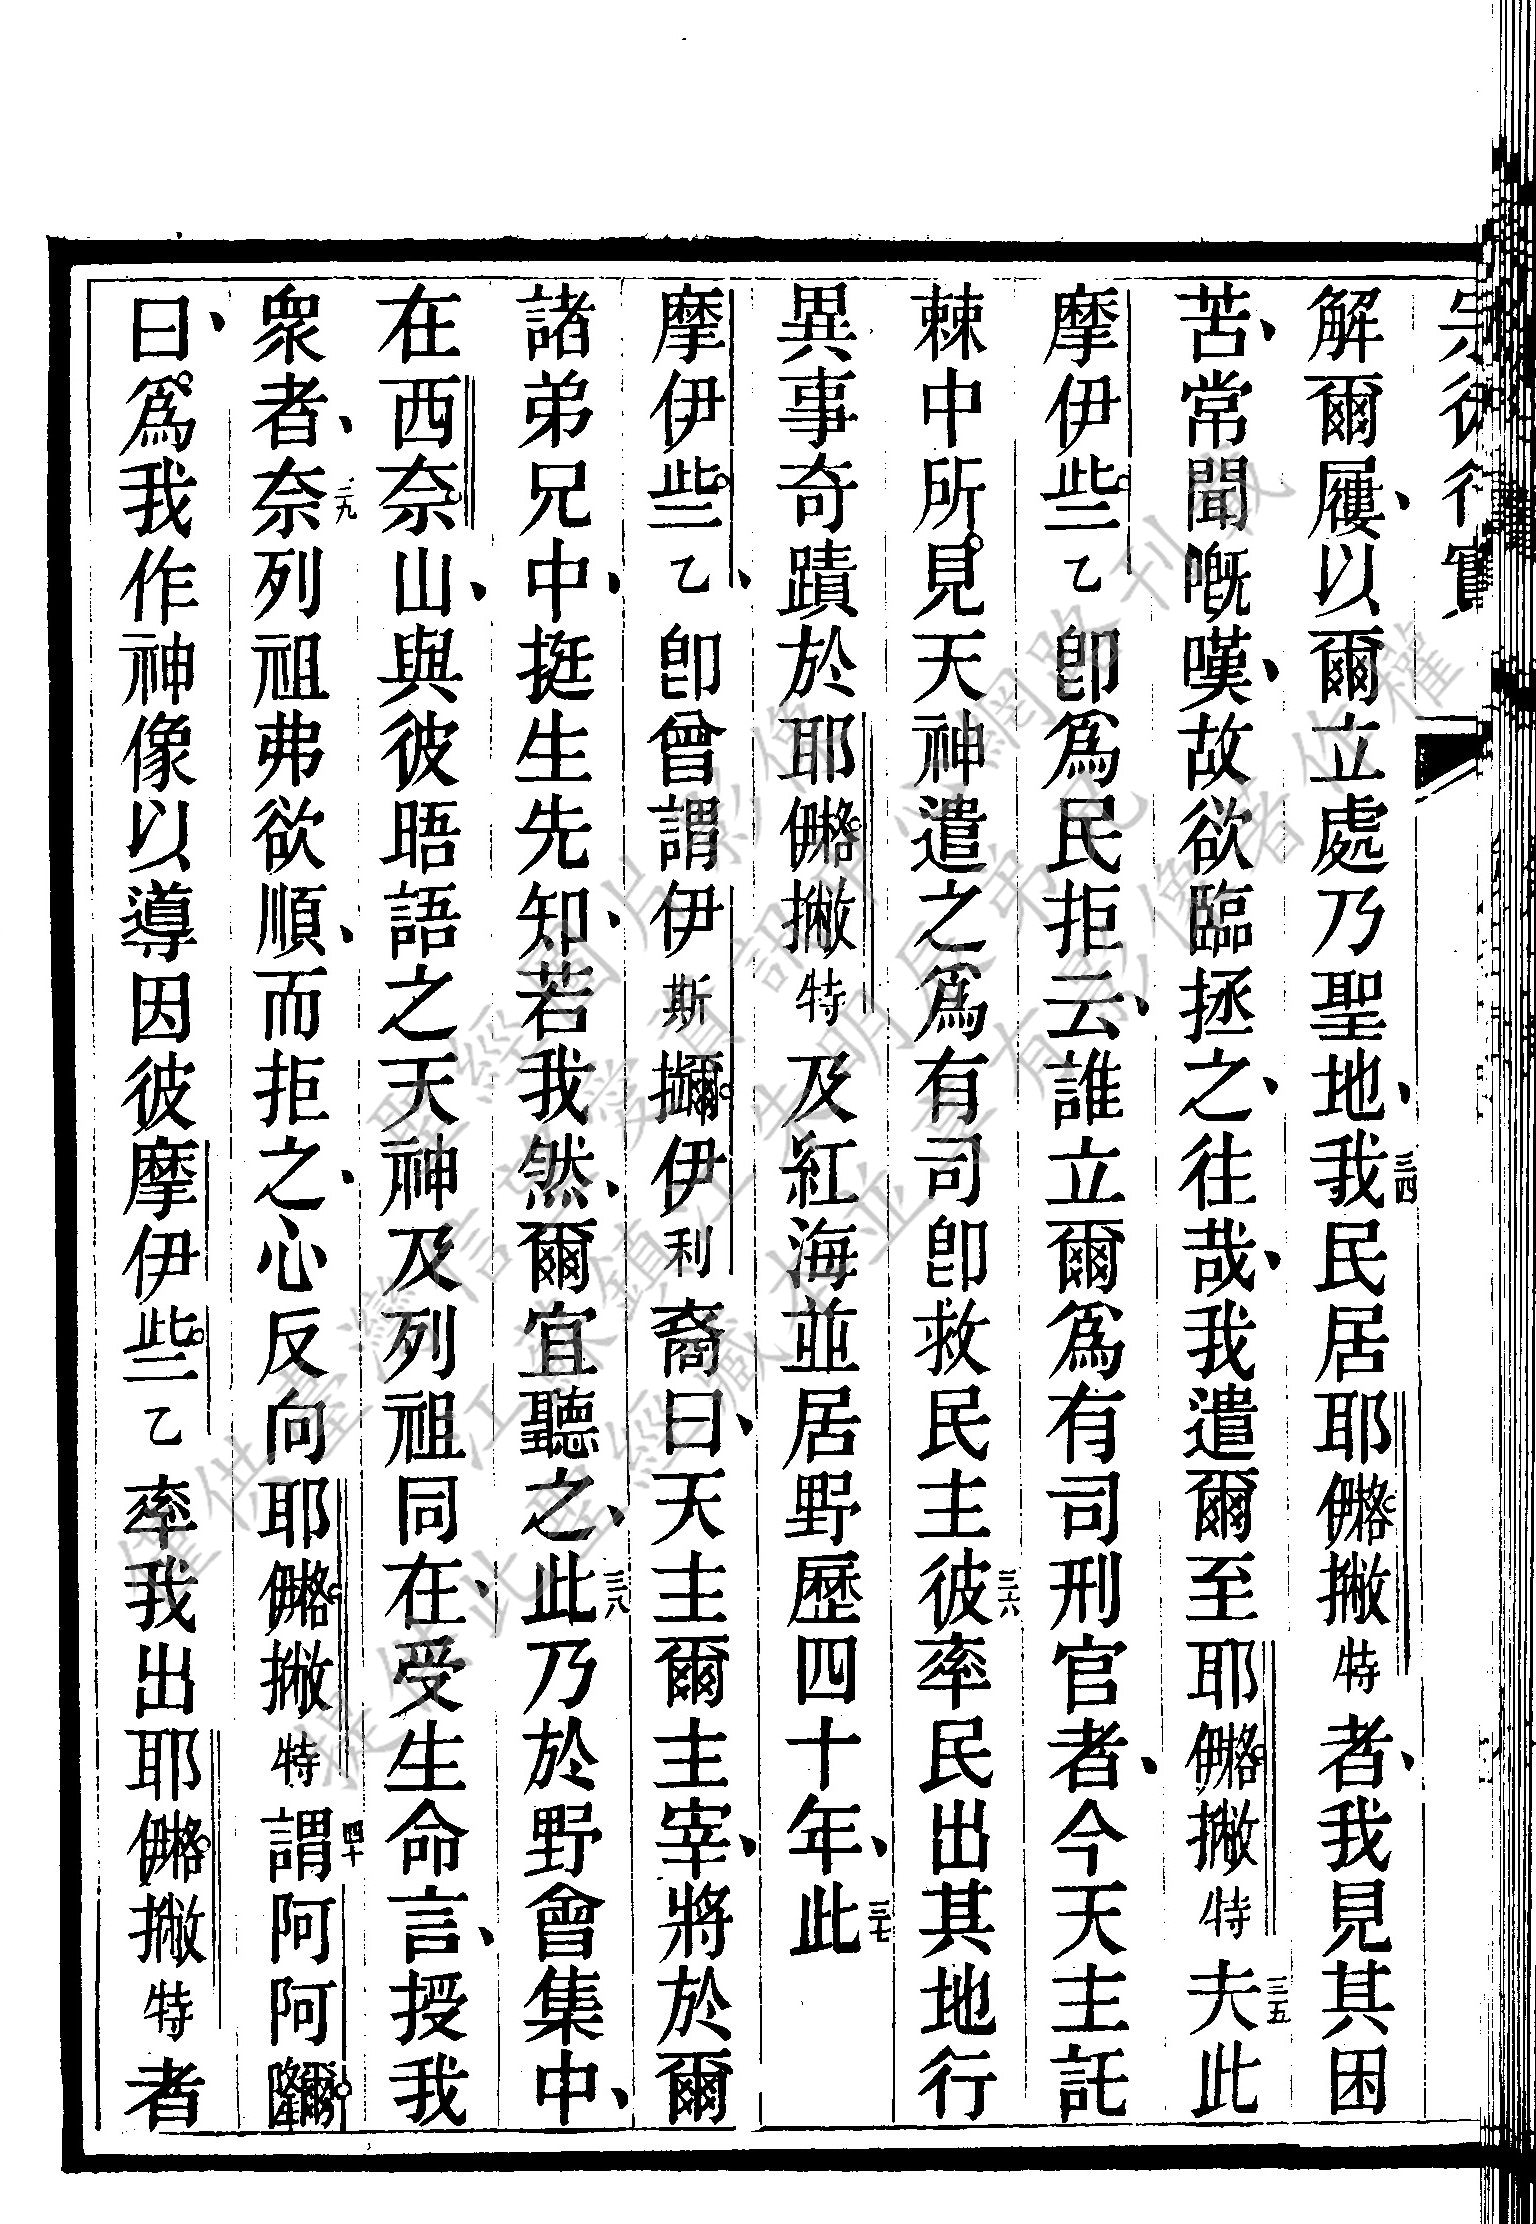 宗徒行實
解爾屨、以爾立處乃聖地、三四我民居耶𠆩撇特者、我見其困
苦、常聞嘅嘆、故欲臨拯之、往哉、我遣爾至耶撇特三五夫此
摩伊些乙卽爲民拒云、誰立爾爲有司刑官者、今天主託
棘中所見天神遣之爲有司卽救民主三六彼率民出其地行
異事奇蹟於耶撇特及紅海並居野歷四十年、三七此
摩伊些乙、卽曾謂伊斯擟伊利裔曰、天主爾主宰、將於爾
諸弟兄中、挺生先知、若我然、爾宜聽之、三八此乃於野會集中、
在西奈山、與彼晤語之天神及列祖同在、受生命言、授我
衆者、三九奈列祖弗欲順、而拒之、心反向耶撇特四十謂阿阿
曰、爲我作神像以導因彼摩伊些乙率我出耶撇特者